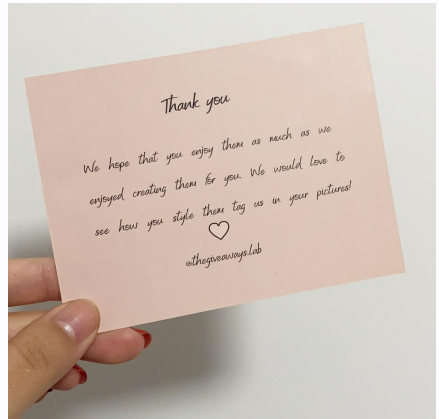 Thank you
We hope that you enjoy them as much as we
enjoyed creating them for you. We would love to
see how you style them tag us in your pictures!
@thegiveaways.lab